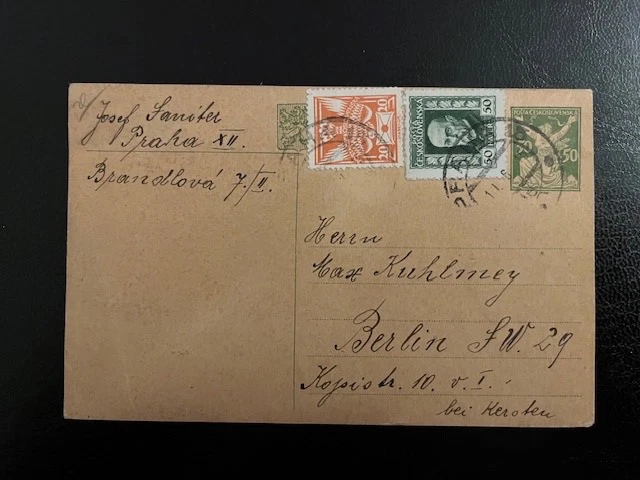 Josef Saniter
Praha XII.
Brandlová 7./II.
20 20
20 20
ČESKOSLOVENSKÁ
50 50
POŠTA ČESKOSLOVENSKÁ
50
PRA
11.
Herrn
Max Kuhlmey
Berlin SW. 29
Kopistr. 10. v. I.
bei Kersten